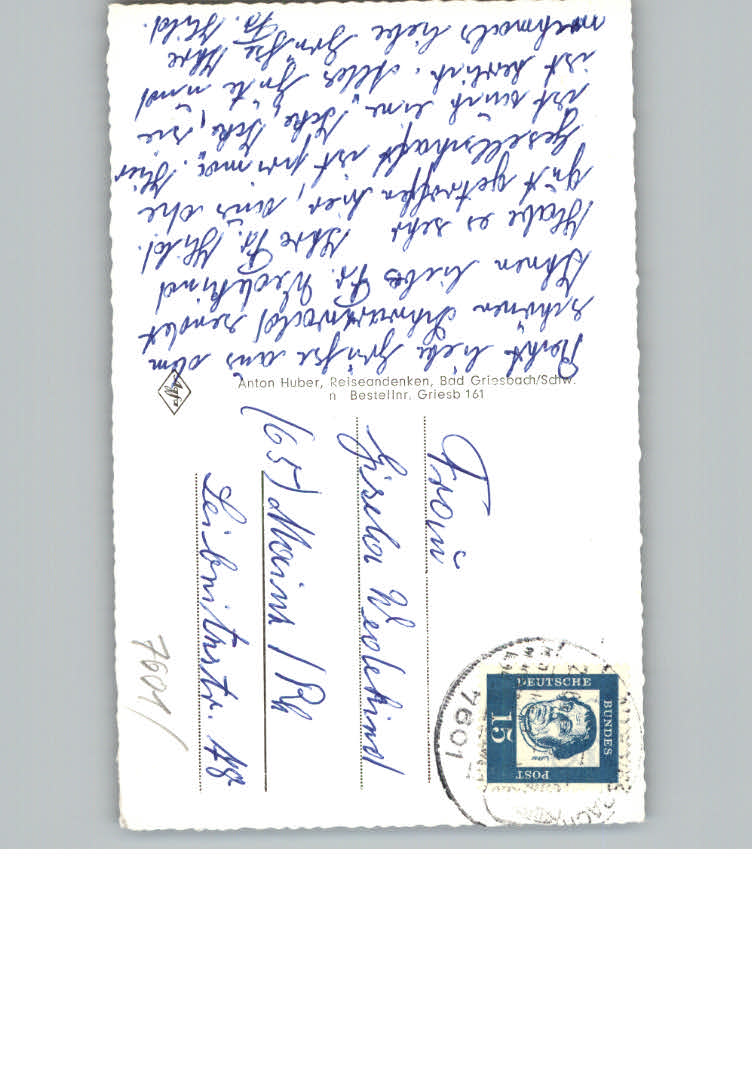 Recht liebe Grüße aus dem
schönen Schwarzwald sendet
Ihnen liebe Fr. Wedekind
Ihre Fr. Hild.
Habe es sehr
gut getroffen hier, auch die
Gesellschaft ist prima. Hier
ist auch eine
ist herrlich. Alles Gute und
nochmals liebe Grüße Ihre
Fr. Hild.
Agfa
Anton Huber, Reiseandenken, Bad Griesbach/Schw.
Bestellnr. Griesb 161
Frau
Gisela Wedekind
(65) Mainz / Rh
Leibnitzstr. 48
7601
DEUTSCHE
BUNDES
POST
15
7601
7601/